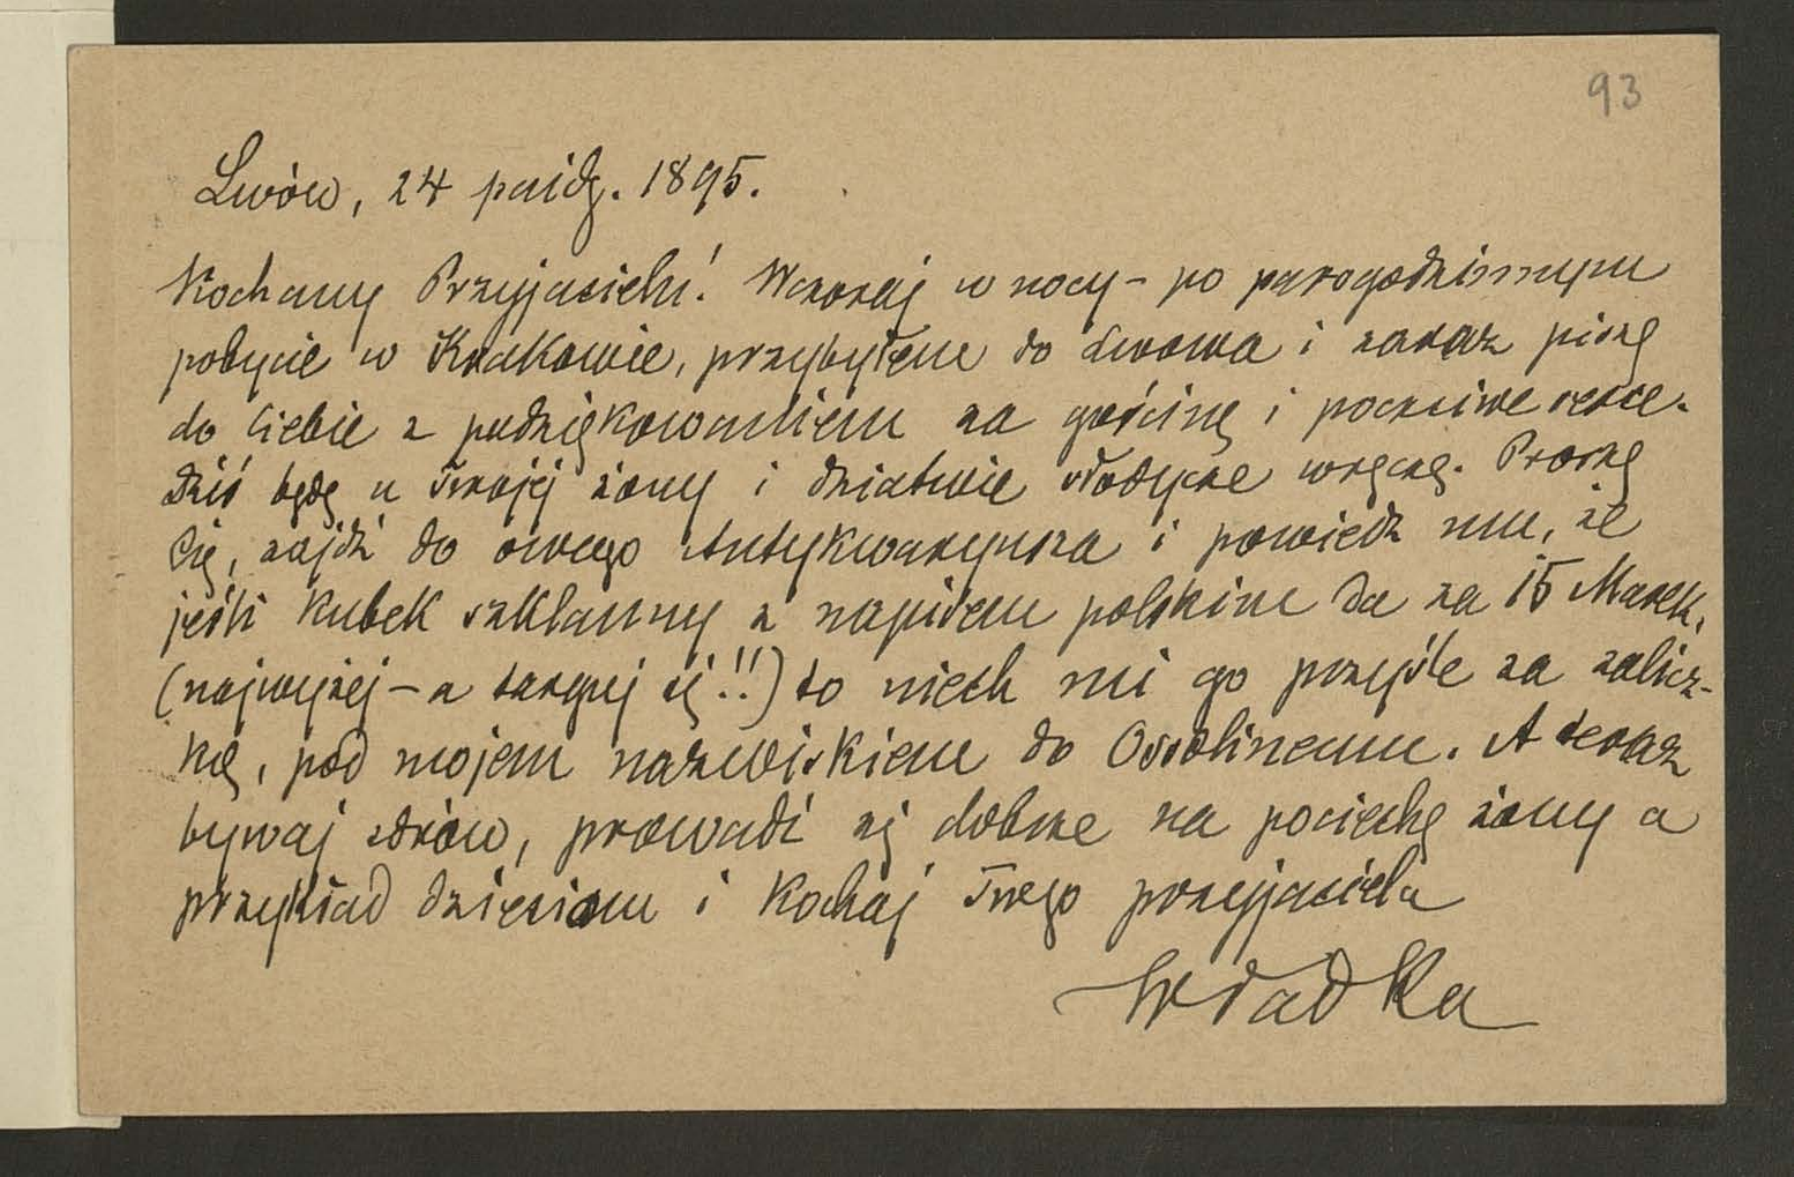 93
Lwów, 24 paźdz. 1895.
Kochany Przyjacielu! Wczoraj w nocy – po parogodzinnym
pobycie w Krakowie, przybyłem do Lwowa i zaraz piszę
do Ciebie z podziękowaniem za gościnę i poczciwe serce.
Dziś będę u Twojej żony i dziatwie słodycze wręczę. Proszę
Cię, zajdź do owego Antykwaryusza i powiedz mu, że
jeśli kubek szklanny z napisem polskim da za 15 Marek,
(najwyżej – a targuj się!!) to niech mi go przyśle za zalicz-
kę, pod mojem nazwiskiem do Ossolineum. A teraz
bywaj zdrów, prowadź się dobrze na pociechę żony a
przykład dzieciom i kochaj Twego przyjaciela
Władka